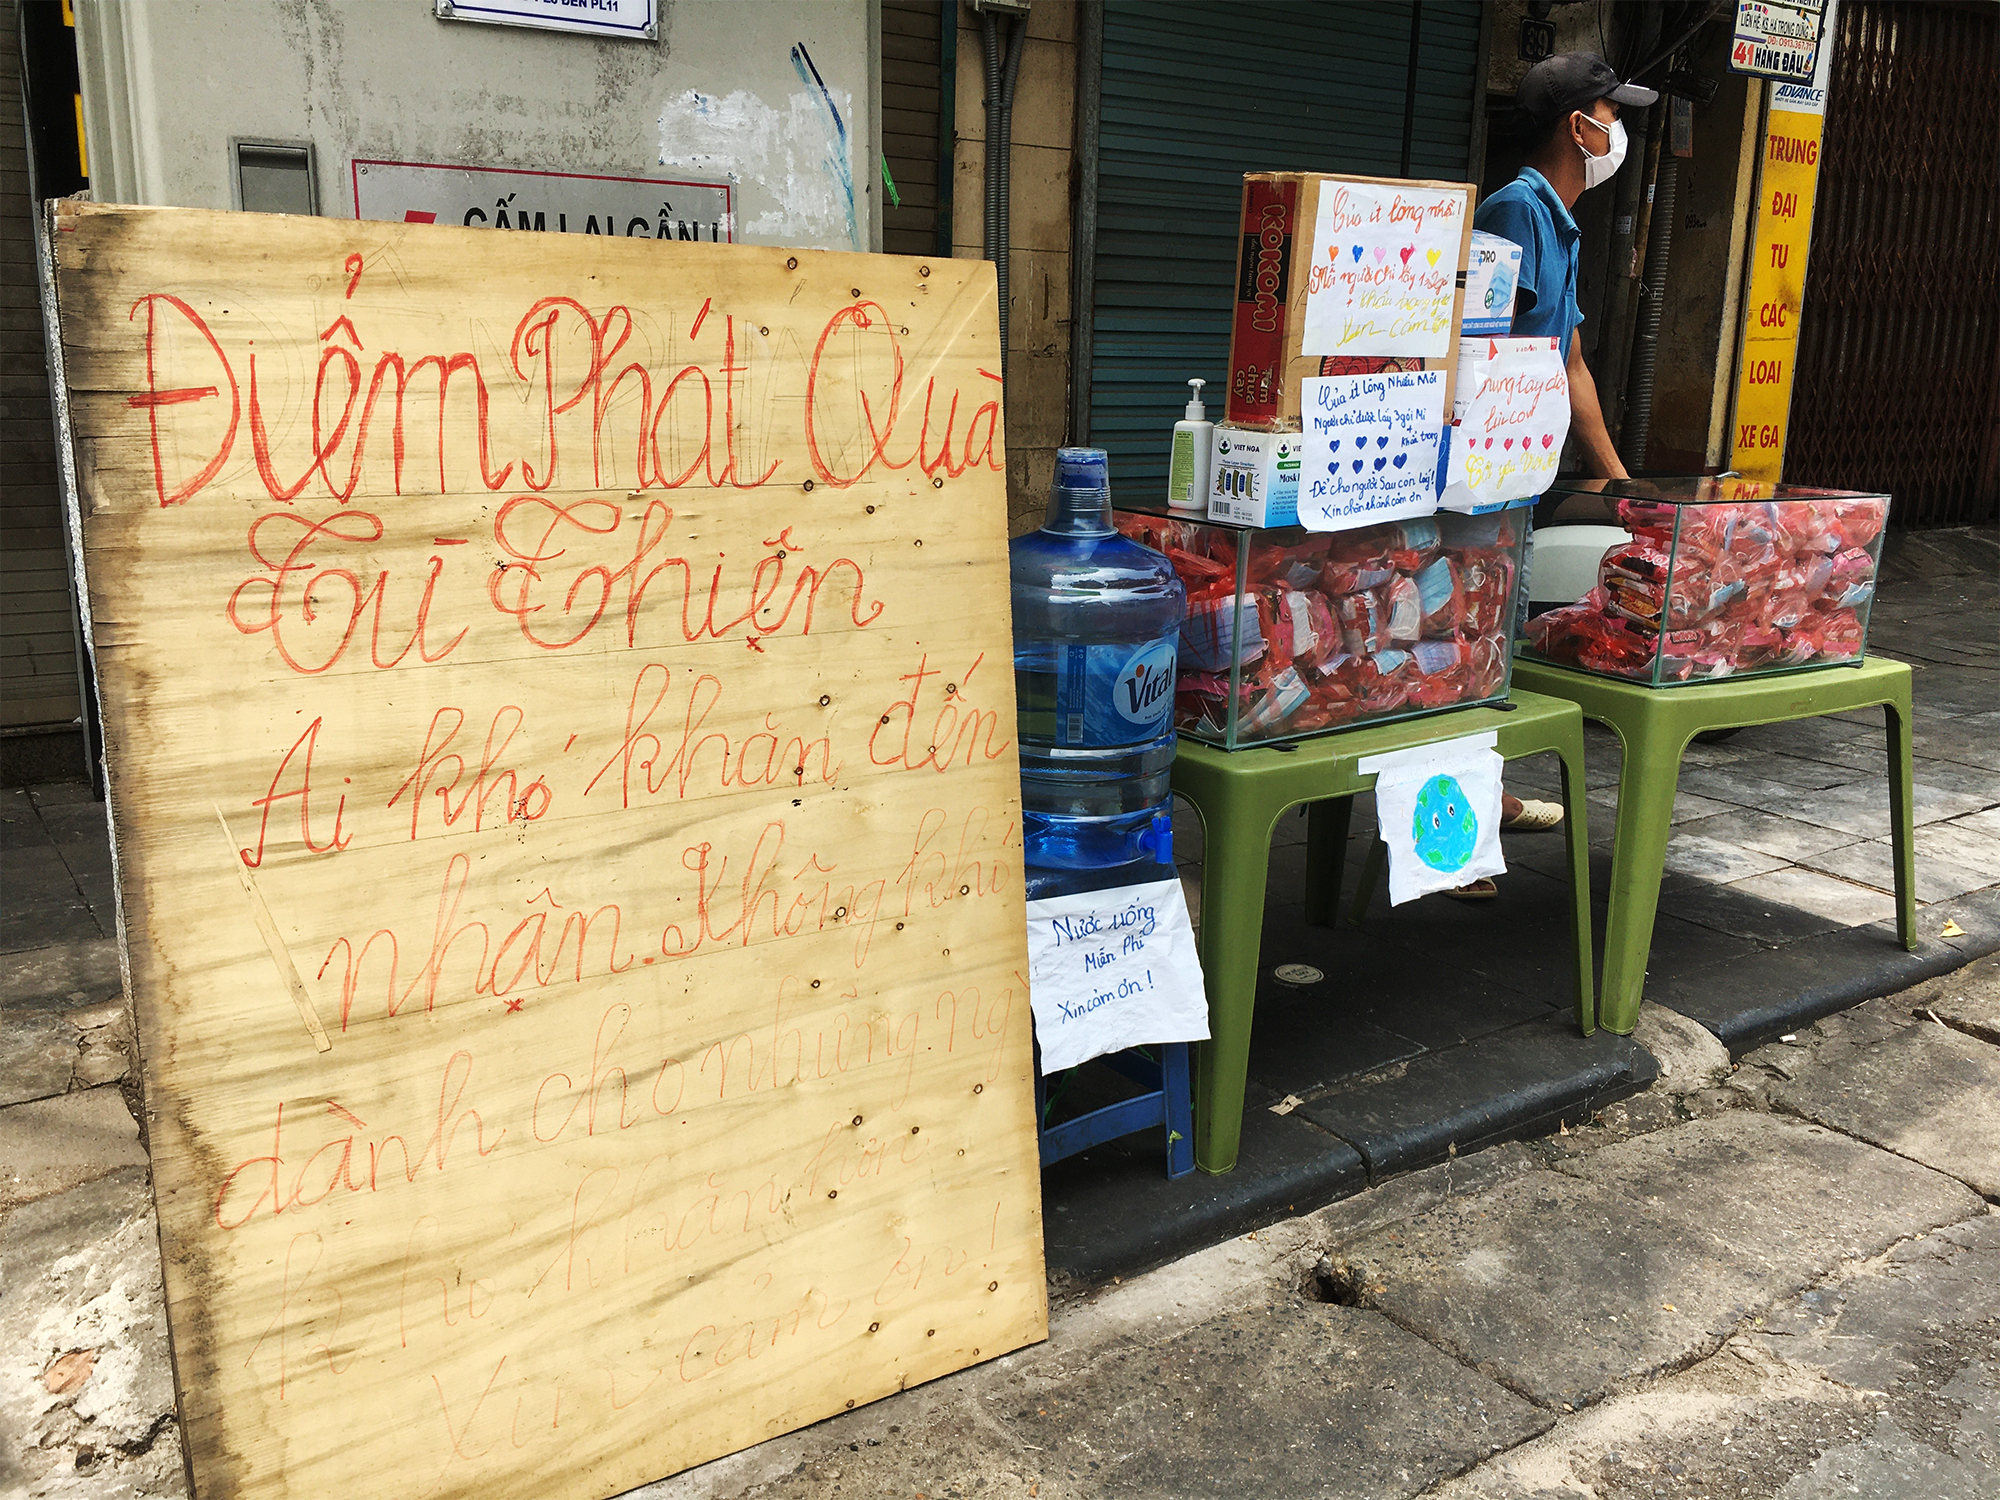 Điểm Phát Quà
Từ Thiện
Ai khó khăn đến
nhận. Không khó
dành cho những ng
khó khăn hơn
Xin cảm ơn!
ĐẾN PL11
CẤM LẠI GẦN!
Nước uống
Miễn Phí
Xin cảm ơn!
Vital
KOKOMI
Tôm
chua
cay
Của ít lòng nhiều!
Mỗi người chỉ lấy 1-2 gói
+ khẩu trang y tế
Xin cảm ơn
Của ít Lòng Nhiều Mỗi
Người chỉ được lấy 3 gói Mì
+ khẩu trang
Để cho người sau còn lấy!
Xin chân thành cảm ơn
VIET NGA
PRO
39
LIÊN HỆ: KS. HÀ TRỌNG DŨNG
DĐ: 0913.367.713
41 HÀNG ĐẬU
ADVANCE
TRUNG
ĐẠI
TU
CÁC
LOẠI
XE GA